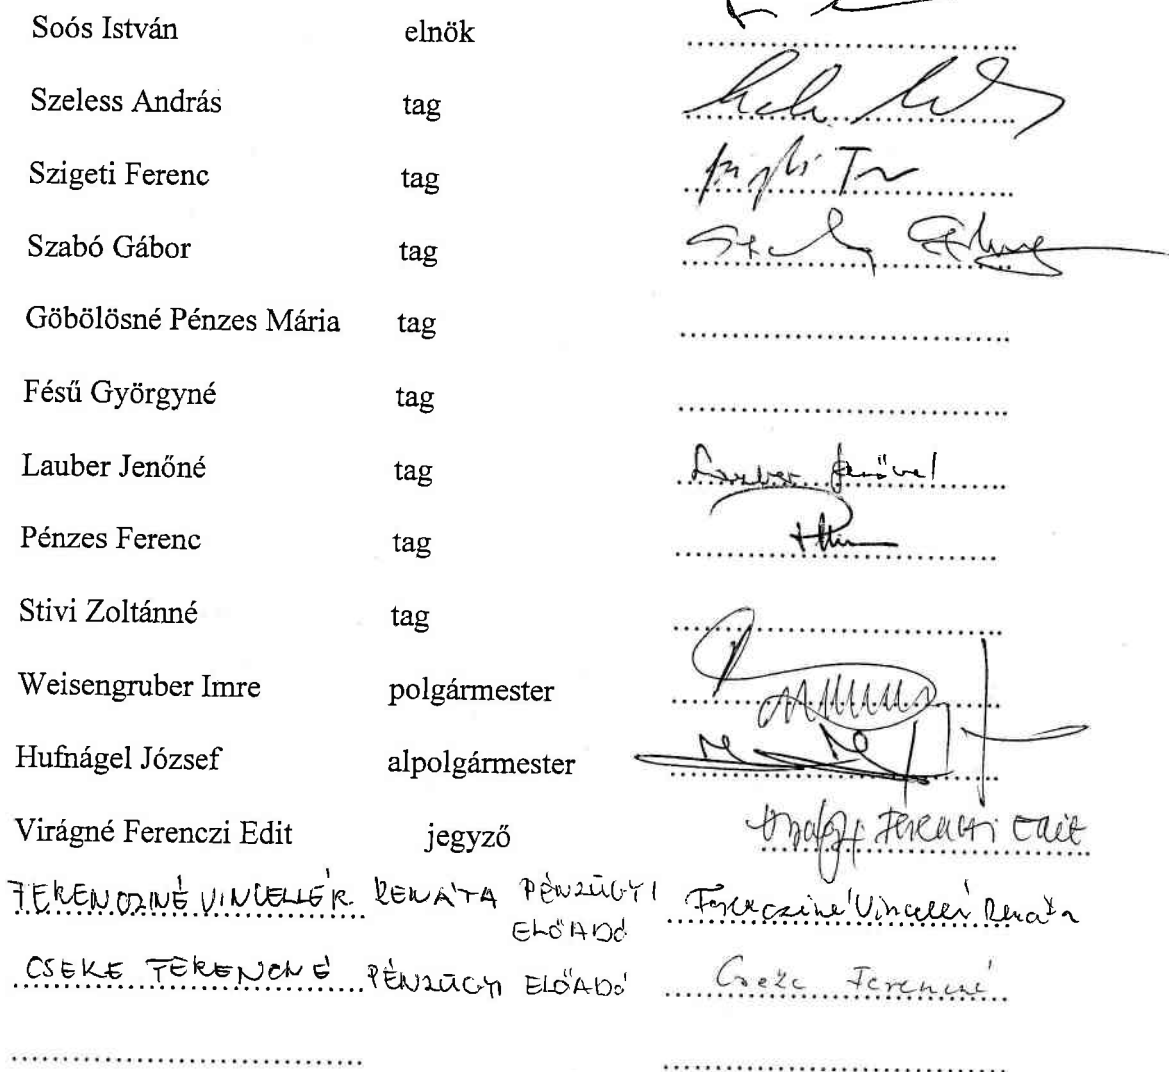 Soós István elnök
Szeless András tag
Szigeti Ferenc tag
Szabó Gábor tag
Göbölösné Pénzes Mária tag
Fésű Györgyné tag
Lauber Jenőné tag Lauber Jenőné
Pénzes Ferenc tag
Stivi Zoltánné tag
Weisengruber Imre polgármester
Hufnágel József alpolgármester
Virágné Ferenczi Edit jegyző Virágné Ferenczi Edit
FERENCZINÉ VINCELLÉR RENÁTA PÉNZÜGYI Ferencziné Vincellér Renáta
ELŐADÓ
CSEKE FERENCNÉ PÉNZÜGYI ELŐADÓ Cseke Ferencné